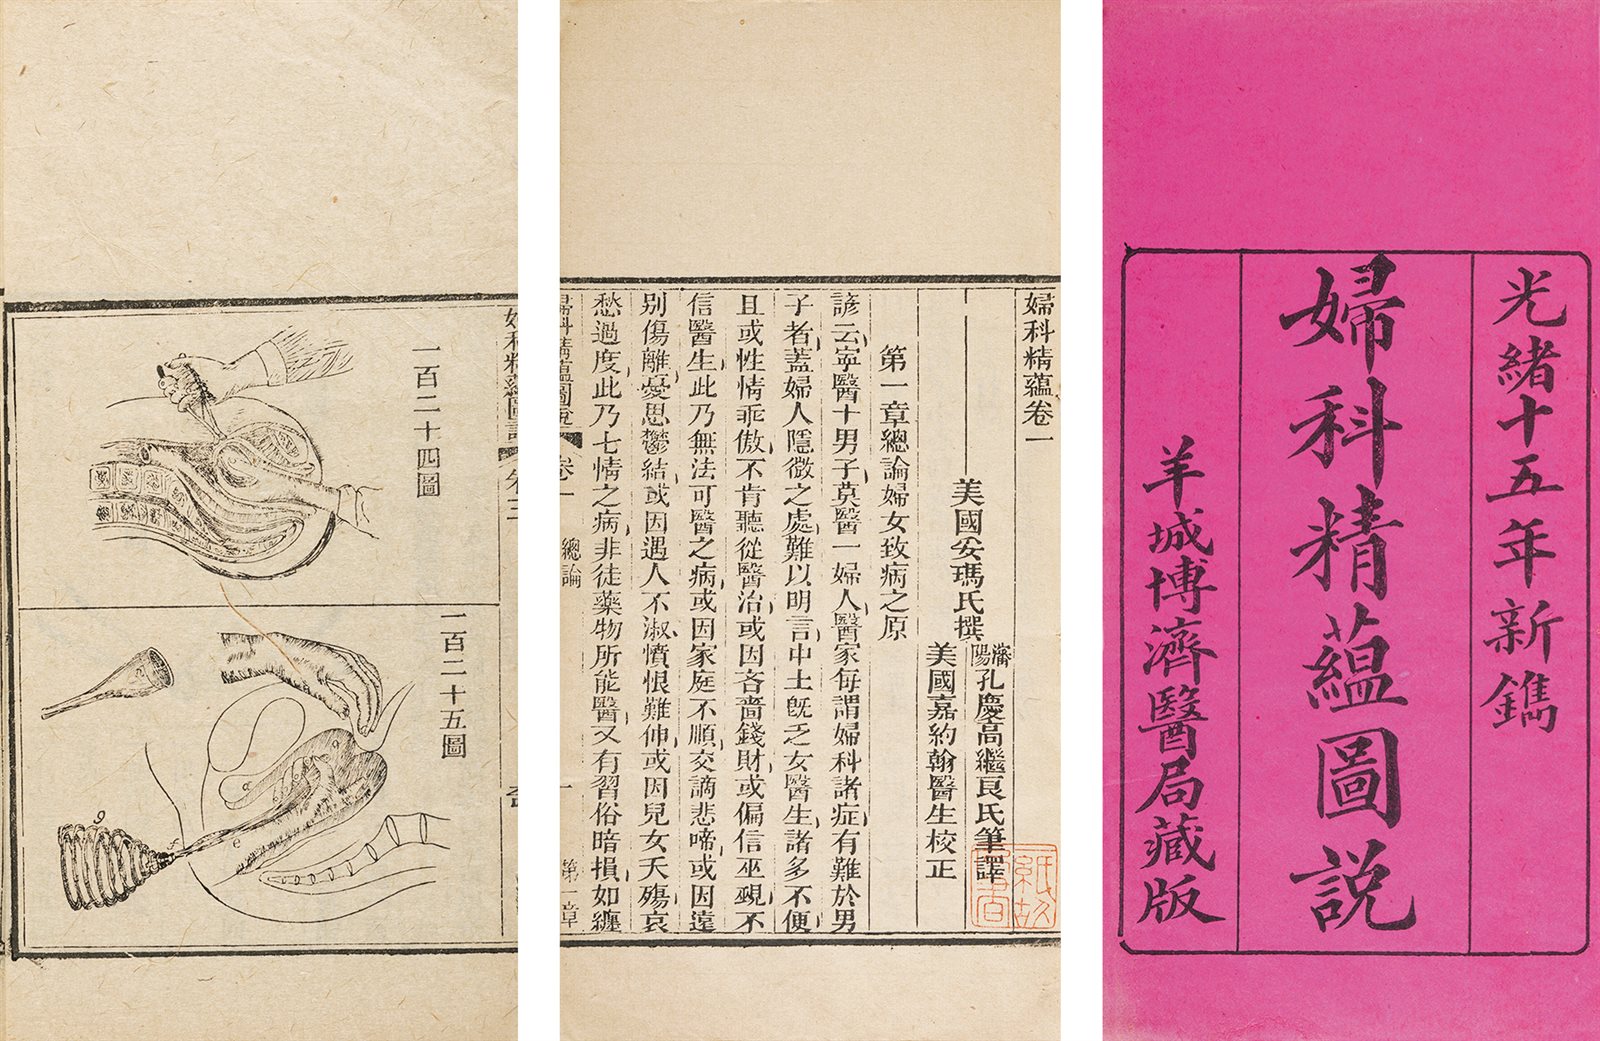 光緒十五年新鐫
婦科精蘊圖說
羊城博濟醫局藏版
婦科精蘊卷一
美國妥瑪氏撰
瀋陽孔慶高繼良氏筆譯
美國嘉約翰醫生校正
第一章總論婦女致病之原
諺云寧醫十男子莫醫一婦人醫家每謂婦科諸症有難於男
子者蓋婦人隱微之處難以明言中土旣乏女醫生諸多不便
且或性情乖傲不肯聽從醫治或因吝嗇錢財或偏信巫覡不
信醫生此乃無法可醫之病或因家庭不順交謫悲啼或因遠
別傷離憂思鬱結或因遇人不淑憤恨難伸或因兒女夭殤哀
愁過度此乃七情之病非徒藥物所能醫又有習俗暗損如纏
婦科精蘊圖說 卷一 總論 一 第一章
婦科精蘊圖說 卷三
一百二十四圖
一百二十五圖
g
f
e